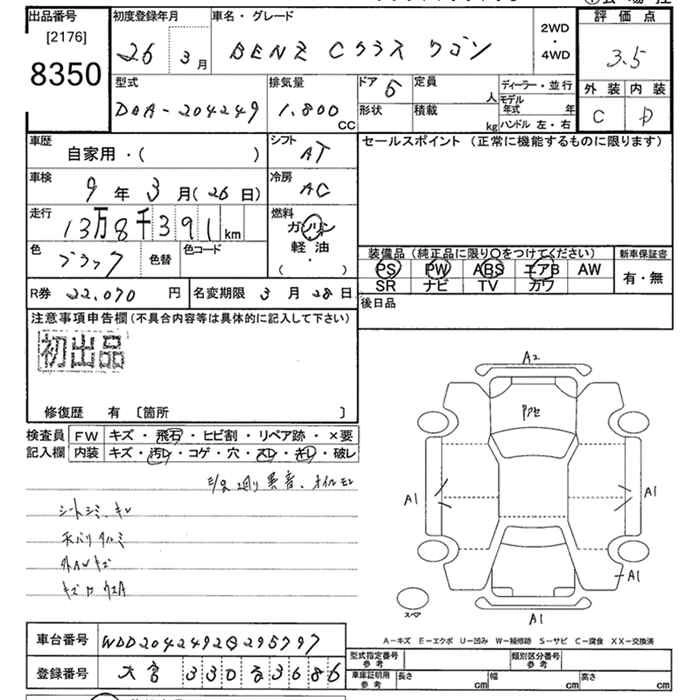 出品番号 初度登録年月 車名・グレード 評価点
[2176] 26 3月 BENZ Cクラス ワゴン 2WD・4WD 3.5
8350
型式 排気量 ドア 5 定員 人 ディーラー・並行 外装 内装
DBA-204249 1.800 CC 形状 積載 kg モデル年式 年 ハンドル 左・右 C D
車歴 シフト セールスポイント (正常に機能するものに限ります)
自家用・( ) AT
車検 9年3月(26日) 冷房 AC
走行 13万8千391km 燃料 ガソリン
軽・油
( )
色 ブラック 色替 色コード
装備品 (純正品に限り○をつけてください) 新車保証書
PS PW ABS エアB AW 有・無
SR ナビ TV カワ
R券 22,070円 名変期限 3月28日
後日品
注意事項申告欄 (不具合内容等は具体的に記入して下さい)
初出品
修復歴 有 〔箇所 〕
検査員 FW キズ・飛石・ヒビ割・リペア跡・×要
記入欄 内装 キズ・汚レ・コゲ・穴・スレ・キレ・破レ
異音、オイルモレ
シートシミ、キレ
外AWキズ
A2
A1
A1
A1
A1
スペア
A-キズ E-エクボ U-凹み W-補修跡 S-サビ C-腐食 XX-交換済
車台番号 WDD2042492G295797
登録番号 大宮 330 3686
型式指定番号 参考 類別区分番号 参考
車庫証明用 参考 長さ cm 幅 cm 高さ cm